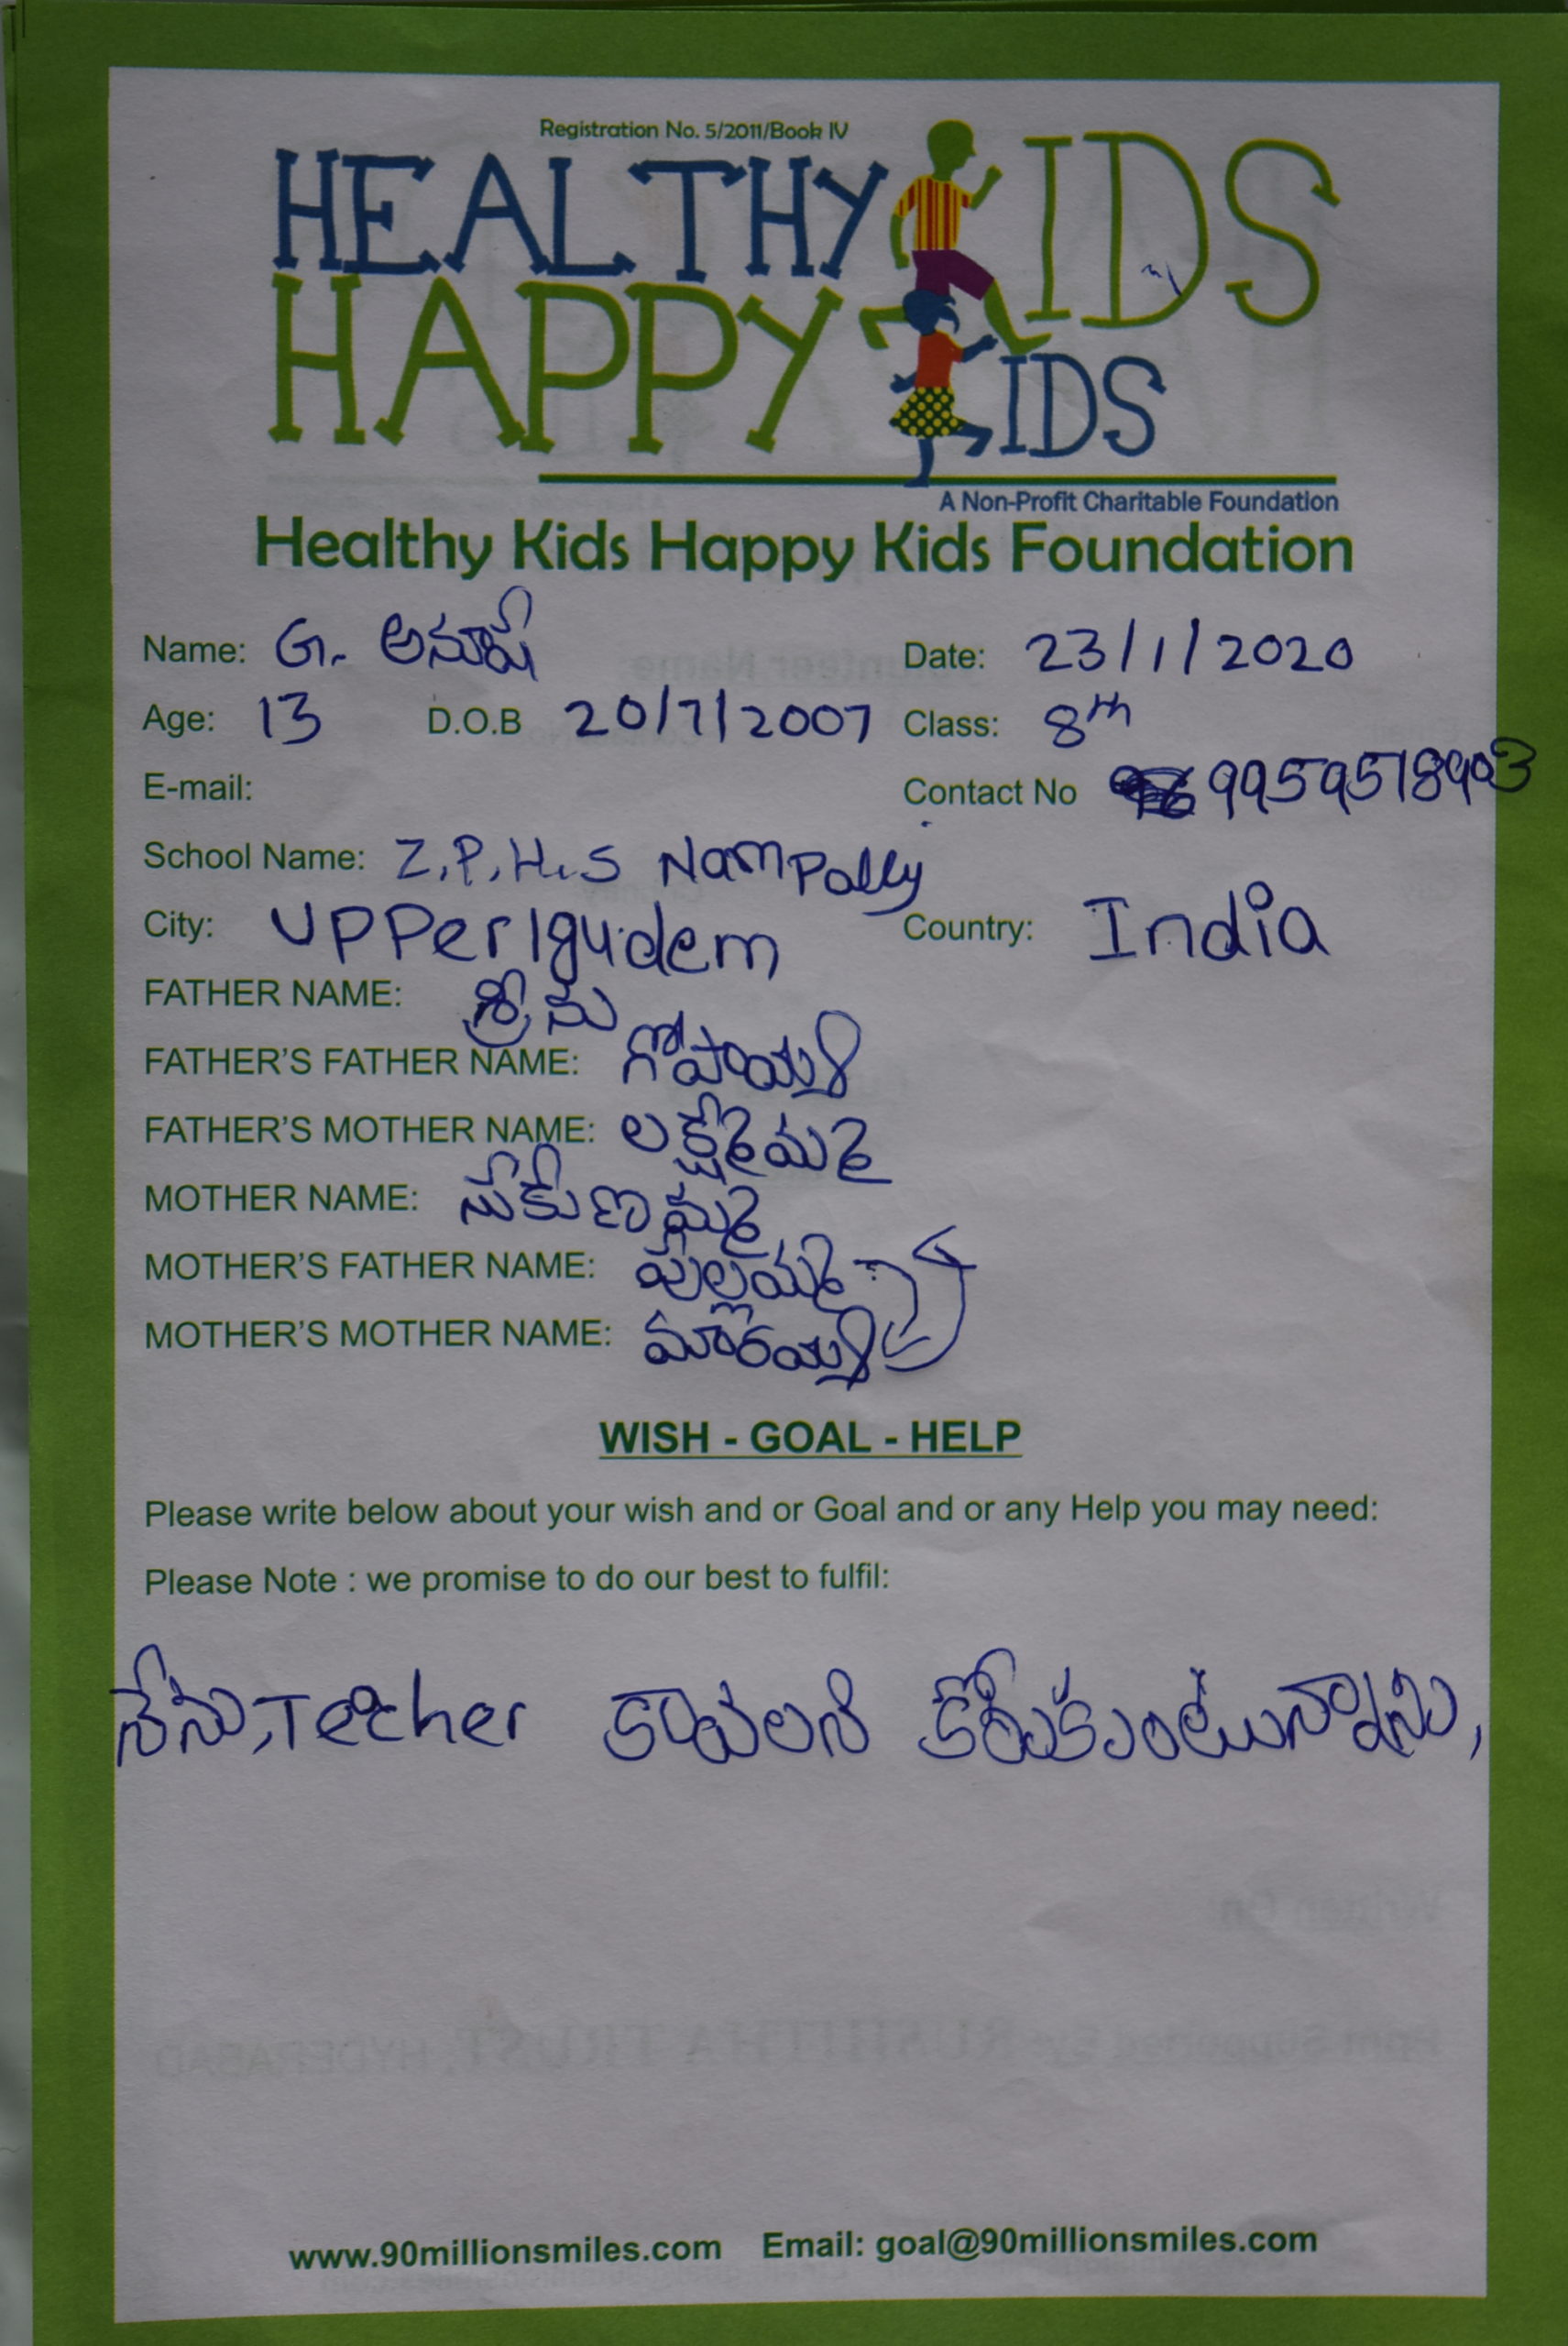 Registration No. 5/2011/Book IV
HEALTHY KIDS
HAPPY KIDS
A Non-Profit Charitable Foundation
Healthy Kids Happy Kids Foundation
Name: G. అనూష Date: 23/1/2020
Age: 13 D.O.B 20/7/2007 Class: 8th
E-mail: Contact No 9959518903
School Name: Z.P.H.S Nampally
City: UPPerlgudem Country: India
FATHER NAME: శ్రీను
FATHER'S FATHER NAME: గోపాయ్య
FATHER'S MOTHER NAME: లక్ష్మెమ్మ
MOTHER NAME: సేకుణమ్మ
MOTHER'S FATHER NAME: పుల్లమ్మ
MOTHER'S MOTHER NAME: మారయ్య
WISH - GOAL - HELP
Please write below about your wish and or Goal and or any Help you may need:
Please Note : we promise to do our best to fulfil:
నేను, Teacher కావలని కోరుకుంటున్నాను,
www.90millionsmiles.com Email: goal@90millionsmiles.com